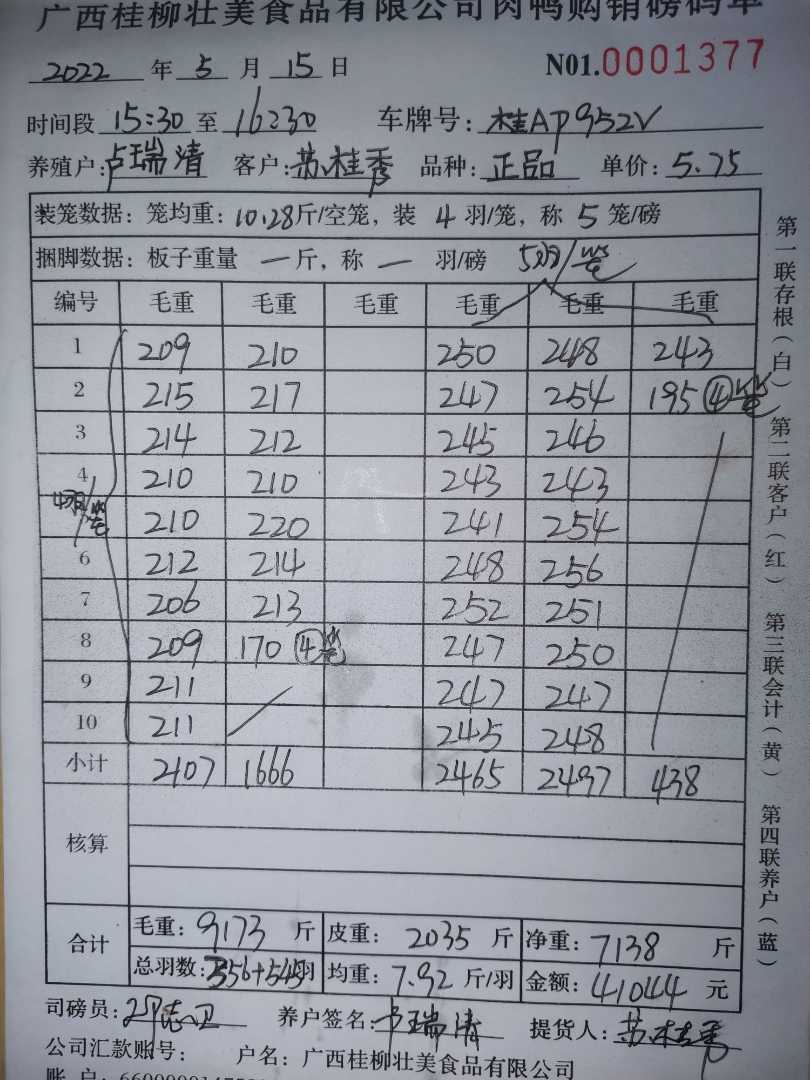 广西桂柳壮美食品有限公司肉鸭购销磅码单
2022 年 5 月 15 日 N01.0001377
时间段 15:30 至 16:30 车牌号: 桂AP952V
养殖户: 卢瑞清 客户: 苏桂秀 品种: 正品 单价: 5.75
装笼数据: 笼均重: 10.28斤/空笼, 装 4 羽/笼, 称 5 笼/磅
捆脚数据: 板子重量 一 斤, 称 一 羽/磅 5羽/笼
编号 毛重 毛重 毛重 毛重 毛重 毛重
1 209 210 250 248 243
2 215 217 247 254 195 ④笼
3 214 212 245 246
4 210 210 243 243
4羽/笼 210 220 241 254
6 212 214 248 256
7 206 213 252 251
8 209 170 ④笼 247 250
9 211 247 247
10 211 245 248
小计 2107 1666 2465 2497 438
核算
合计 毛重: 9173 斤 皮重: 2035 斤 净重: 7138 斤
总羽数: 356+545羽 均重: 7.92 斤/羽 金额: 41044 元
司磅员: 养户签名: 卢瑞清 提货人: 苏桂秀
公司汇款账号: 户名: 广西桂柳壮美食品有限公司
账 户:
第一联存根(白) 第二联客户(红) 第三联会计(黄) 第四联养户(蓝)